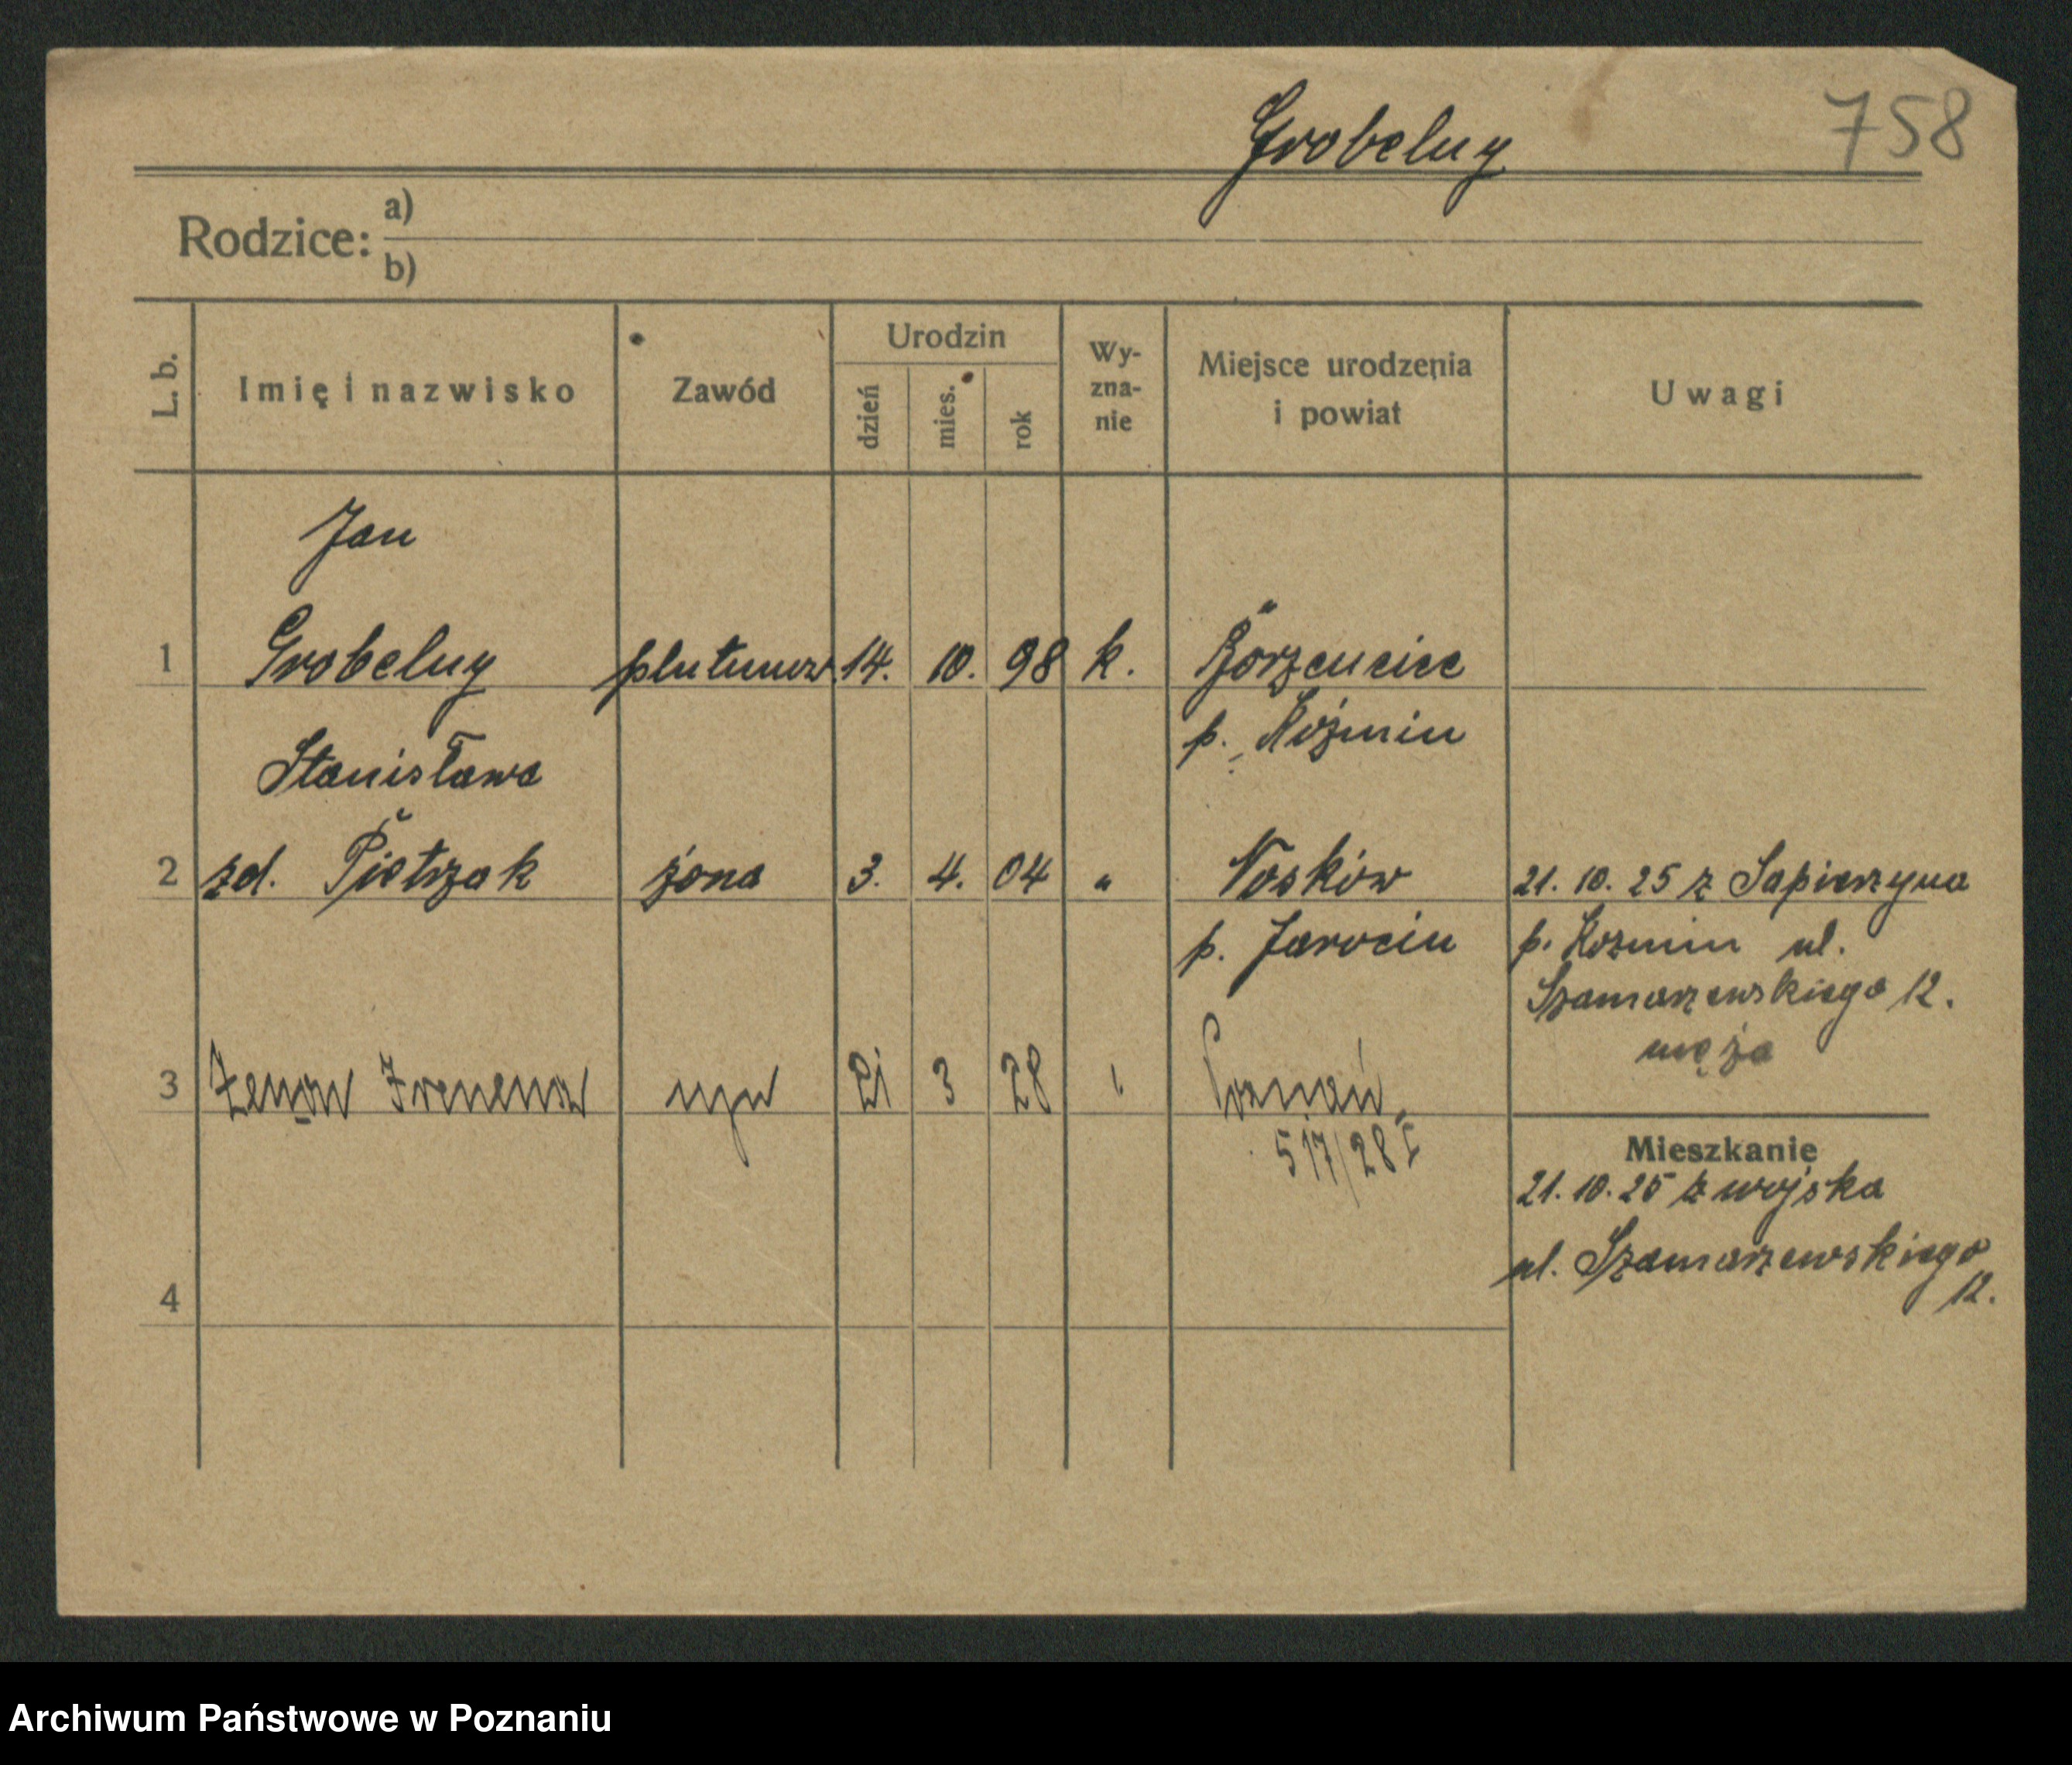 Grobelny
758
Rodzice: a)
b)
L. b.
Imię i nazwisko
Zawód
Urodzin
dzień
mies.
rok
Wy-
zna-
nie
Miejsce urodzenia
i powiat
Uwagi
Jan
1 Grobelny plutonow. 14. 10. 98 k. Borzencice
p. Koźmin
Stanisława
2 zd. Pietrzak żona 3. 4. 04 " Nosków 21. 10. 25 z Sapierzyna
p. Jarocin p. Kozmin ul.
Szamarzewskiego 12.
męża
3 Zenon syn 21 3 28 Poznań
517/28
Mieszkanie
21. 10. 25 z wojska
ul. Szamarzewskiego
12.
4
Archiwum Państwowe w Poznaniu